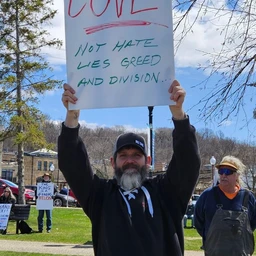 LOVE
NOT HATE
LIES GREED
AND DIVISION.